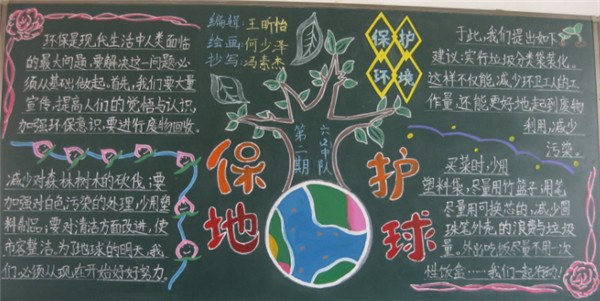 环保是现代生活中人类面临
的最大问题,要解决这一问题,必
须从基础做起。首先,我们要大量
宣传,提高人们的觉悟与认识,
加强环保意识,要进行废物回收。
减少对森林树木的砍伐,要
加强对白色污染的处理,少用塑
料制品,要对清洁方面改进,使
市容整洁,为了地球的明天,我
们,必须从现在开始好好努力。
编辑:王昕怡
绘画:何少泽
抄写:冯素杰
第二期
六(2)中队
保护
地球
保护
环境
于此,我们提出如下
建议:实行垃圾分类袋装化。
这样不仅能减少环卫工人的工
作量,还能更好地起到废物
利用,减少
污染。
买菜时,少用
塑料袋,尽量用竹篮子,用笔
尽量用可换芯的,减少圆
珠笔外壳的浪费与垃圾
量。外出吃饭尽量不用一次
性饭盒……我们一起行动!